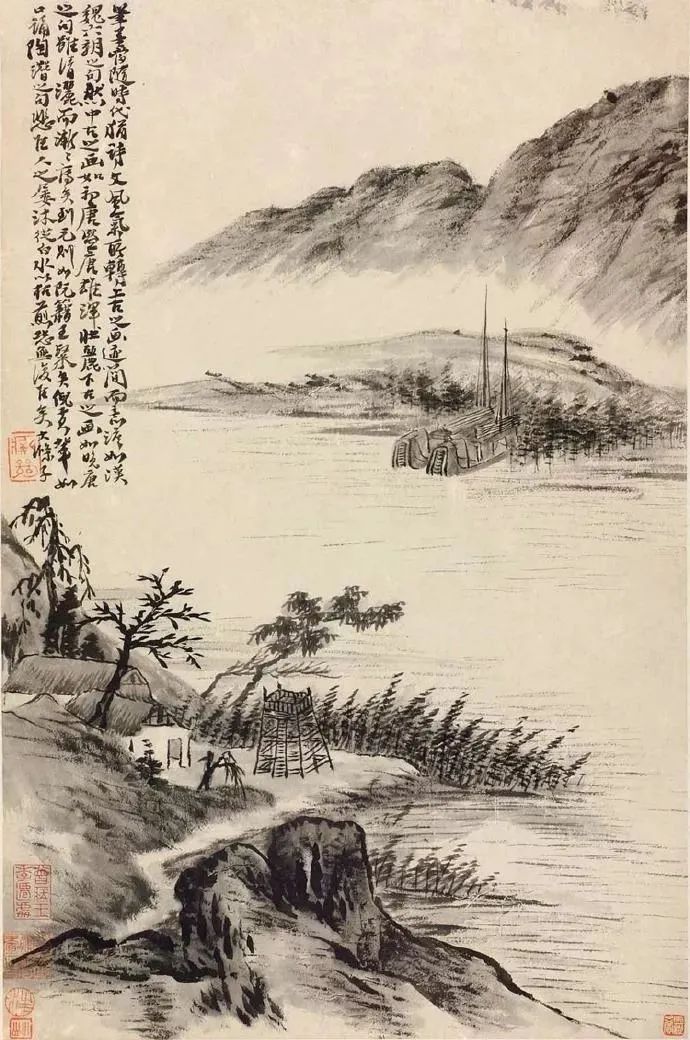 筆墨當隨時代猶詩文風氣所轉上古之畫迹簡而意淡如漢
魏六朝之句然中古之畫如初唐盛唐雄渾壯麗下古之畫如晚唐
之句雖清灑而漸々薄矣到元則如阮籍王粲矣倪黃輩如
口誦陶潛之句悲佳人之屢沐從白水以枯煎恐無復佳矣大滌子